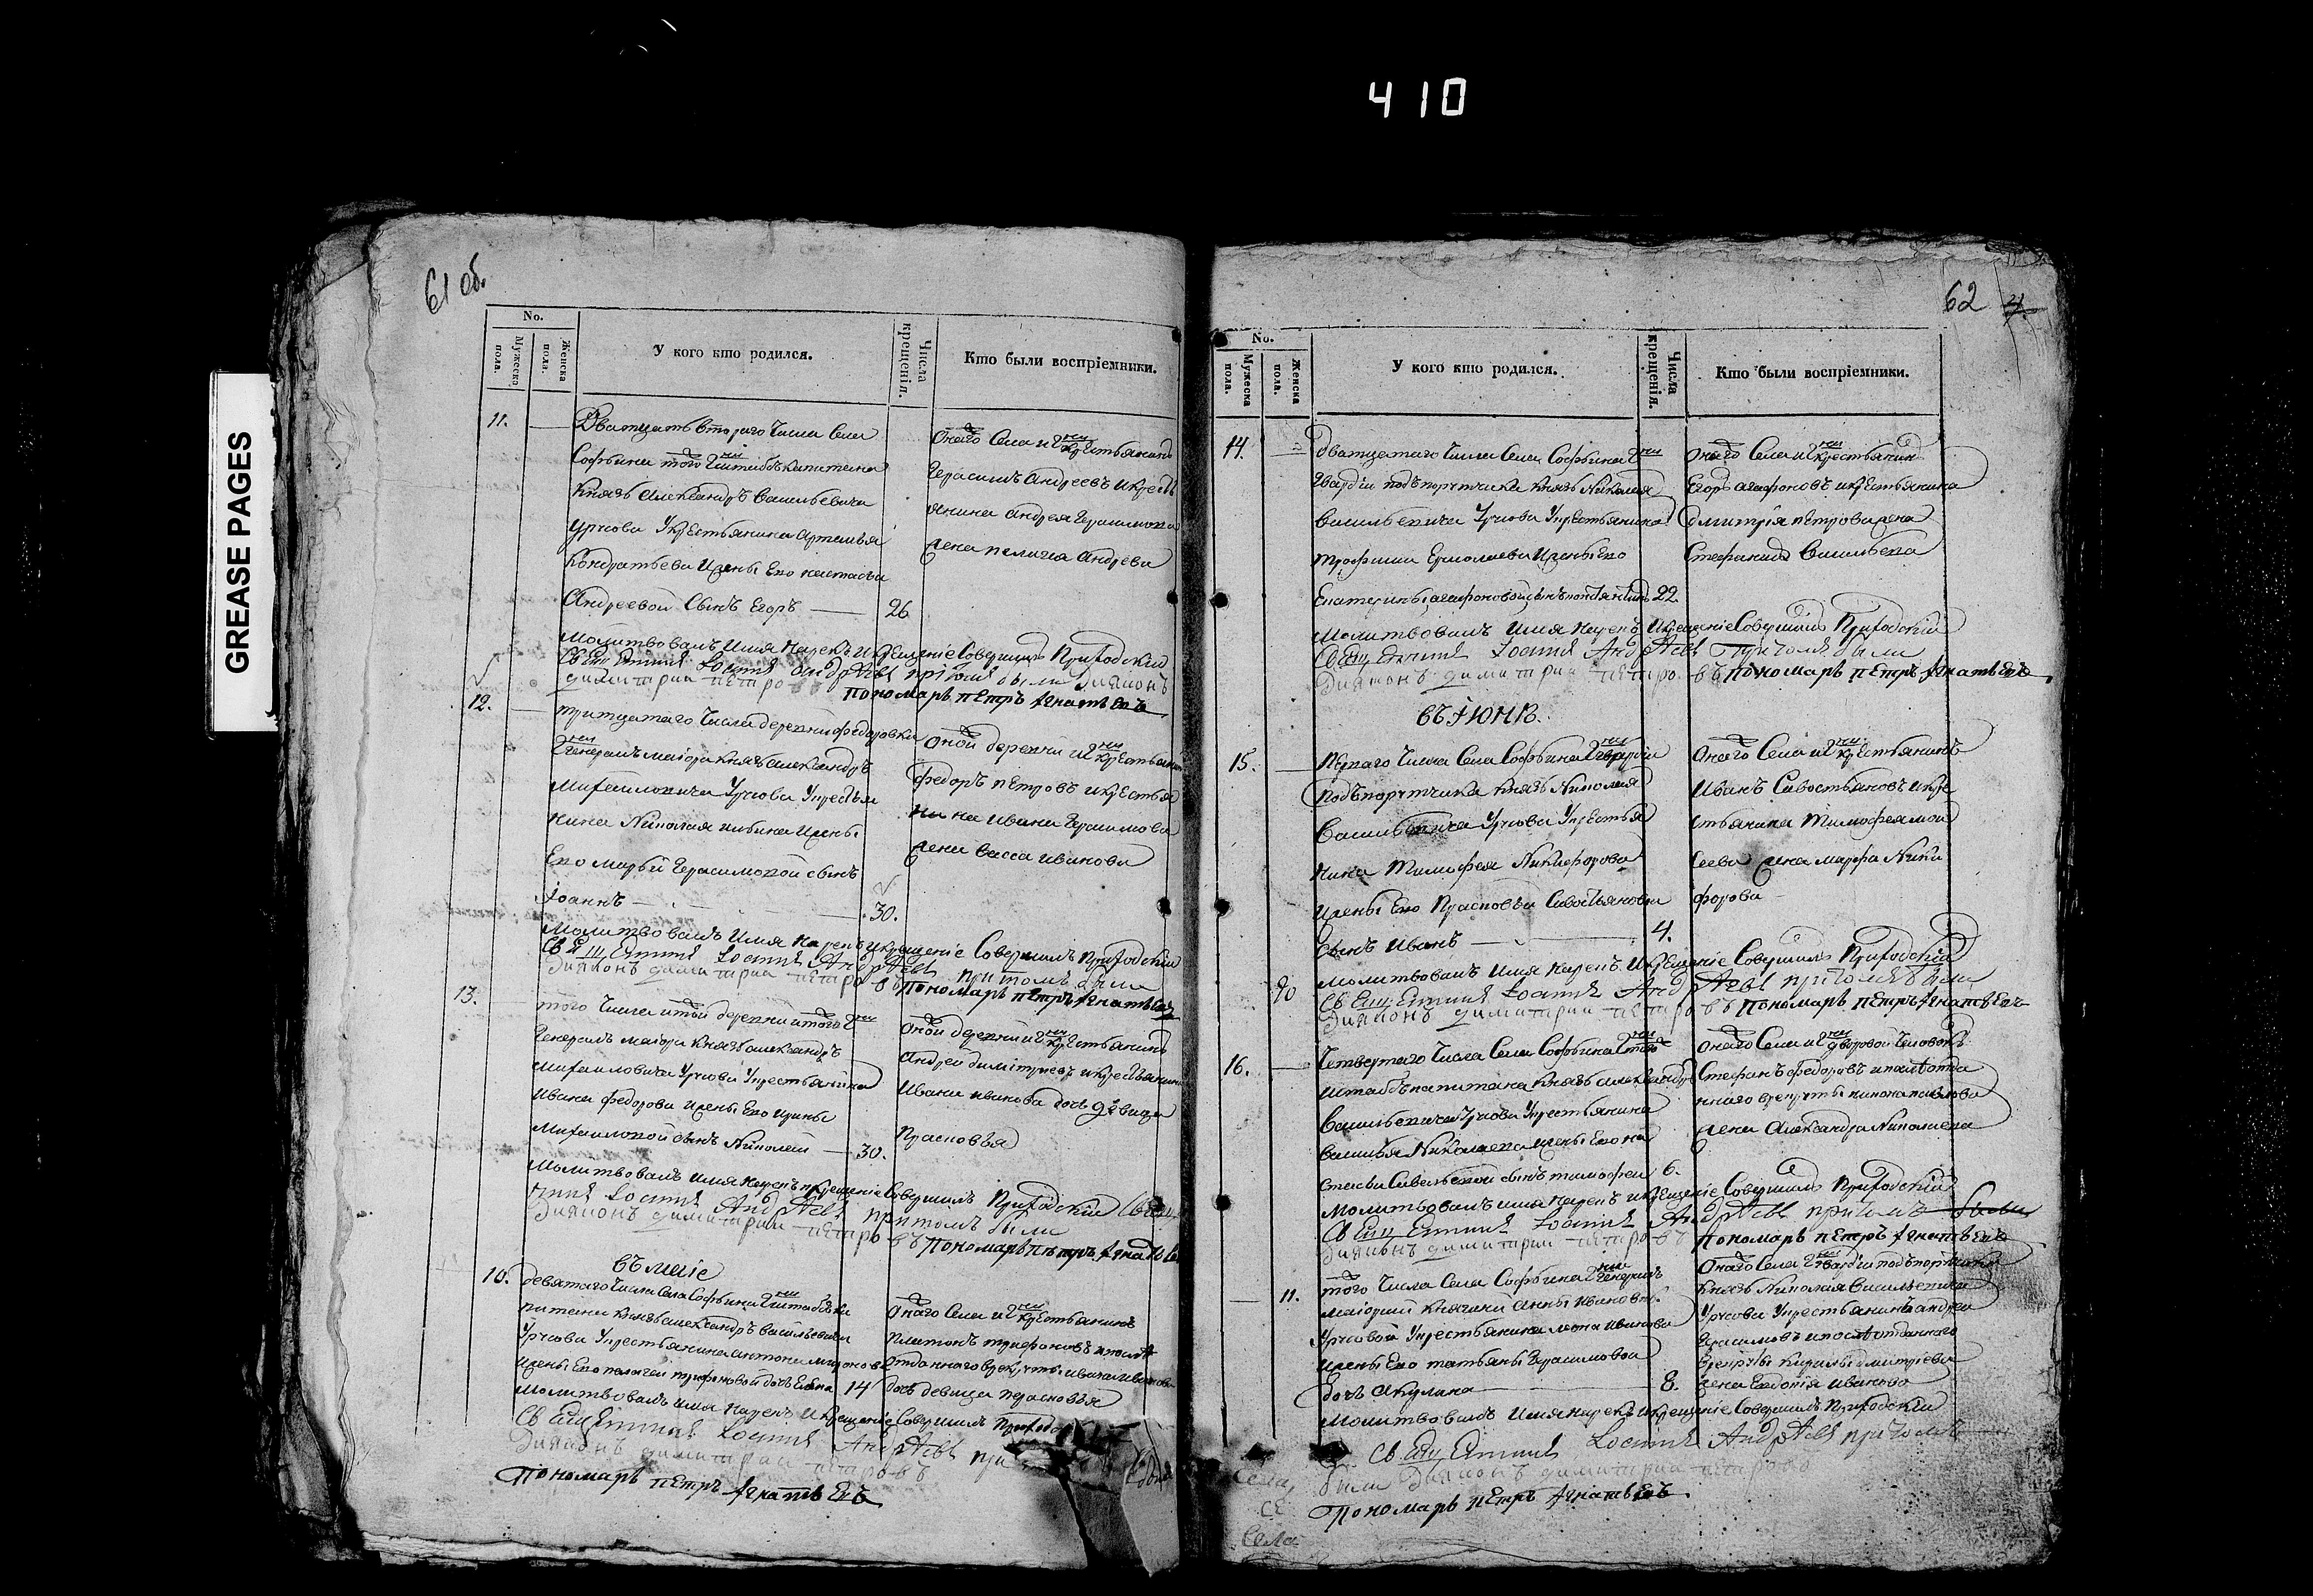 410
GREASE PAGES
61 об.
No.
Мужеска пола.
Женска пола.
У кого кто родился.
Числа крещенія.
Кто были воспріемники.
11.
Дватцать втораго Числа Села
Софьина того
Князь Александръ Васильевича
Урусова Укрестьянина Артемья
Кондратьева Ижены Его настасьи
Андреевой Сынъ Егоръ — 26
Онаго Села и крестьянинъ
Герасимъ Андреевъ икресть
янина Андрея Герасимова
жена пелагея Андреева
Молитвовалъ Имя Нарекъ Икрещеніе Совершилъ Приходскій
Іоаннъ Андреевъ притомъ были Диаконъ
димитрии петровъ пономарь петръ Игнатьевъ
12.
тритцатаго Числа деревни федоровки
Генералъ маіора князь александръ
Михаиловича Урусова Укрестья
нина Николая ильина Ижены
Его Марьи Герасимовой сынъ
Іоаннъ — 30.
Оной деревни и крестьянинъ
федоръ петровъ икрестья
нина Ивана Герасимова
жена васса иванова
Молитвовалъ Имя Нарекъ Икрещеніе Совершилъ Приходскій
Іоаннъ Андреевъ притомъ были
Диаконъ димитрии петровъ пономарь петръ Игнатьевъ
13.
того Числа итой деревни итого
Генералъ маіора Князь александръ
Михаиловича Урусова Укрестьянина
Ивана федорова ижены Его Ирины
Михаиловой сынъ Николай — 30.
Оной деревни и крестьянинъ
Андреи димітриевъ икрестьянина
Ивана иванова дочь девица
Прасковья
Молитвовалъ имя нарекъ икрещеніе Совершилъ Приходскій
Іоаннъ Андреевъ притомъ были
Диаконъ димитрии петровъ Пономарь петръ Игнатьевъ
въ маіе
10.
девятаго Числа Села Софьина штабъ ка
питана Князь александръ васильевича
Урусова Укрестьянина антона миронова
ижены Его пелагеи трифоновой дочь Елена 14
Онаго Села и крестьянинъ
Платонъ трифоновъ ипослѣ
отданнаго врекруты ивана иванова
дочь девица прасковья
Молитвовалъ имя нарекъ Икрещеніе Совершилъ
Іоаннъ Андреевъ
Диаконъ димитрии петровъ
Пономарь петръ Игнатьевъ
62
No.
Мужеска пола.
Женска пола.
У кого кто родился.
Числа крещенія.
Кто были воспріемники.
14.
дватцатаго Числа Села Софьина
Гвардіи подъпорутчика князь Николая
Васильевича Урусова Укрестьянина
трофима Ермолаева Ижены Его
Екатерины агафоновой сынъ константинъ 22.
Онаго Села и крестьянинъ
Егоръ агафоновъ икрестьянина
дмитрія петрова жена
Стефанида Васильева
Молитвовалъ имя нарекъ Икрещеніе Совершилъ Приходскій
Іоаннъ Андреевъ притомъ были
Диаконъ димитрии петровъ пономарь петръ Игнатьевъ
въ ІЮНѢ.
15.
Перваго Числа Села Софьина гвардіи
Подъпорутчика князь Николая
Васильевича Урусова Укрестья
нина Тимофея Никифорова
Ижены Его Прасковьи Савостьяновы
Сынъ Иванъ — 4.
Онаго Села и крестьянинъ
Иванъ Савостьяновъ икре
стьянина Тимофея мои
сеева жена марфа Ники
форова
Молитвовалъ Имя нарекъ. Икрещеніе Совершилъ Приходскій
Іоаннъ Андреевъ притомъ были
Диаконъ димитрии петровъ пономарь петръ Игнатьевъ
16.
Четвертаго Числа Села Софьина того
штабъ капитана Князь александръ
Васильевича Урусова Укрестьянина
Василья Николаева ижены Его на
стасьи Савельевой сынъ тимофеи 6.
Онаго Села и дворовой Человекъ
Стефанъ федоровъ ипослѣ отда
ннаго врекруты никона павлова
жена Александра Николаева
Молитвовалъ имя нарекъ икрещеніе Совершилъ Приходскій
Іоаннъ Андреевъ притомъ были
Диаконъ димитрии петровъ Пономарь петръ Игнатьевъ
11.
того Числа Села Софьина Генералъ
маіорши Княгини Анны Ивановны
Урусовой Укрестьянина леона иванова
ижены Его татьяны Герасимовой
дочь Акулина — 8.
Онаго Села Гвардіи подъпорутчика
Князь Николая Васильевича
Урусова Укрестьянинъ андреи
Герасимовъ ипослѣ отданнаго
врекруты Кирилы дмитріева
жена Евдокія иванова
Молитвовалъ Имя нарекъ икрещеніе Совершилъ Приходскій
Іоаннъ Андреевъ притомъ
были Диаконъ димитрии петровъ
Пономарь петръ Игнатьевъ.
Села